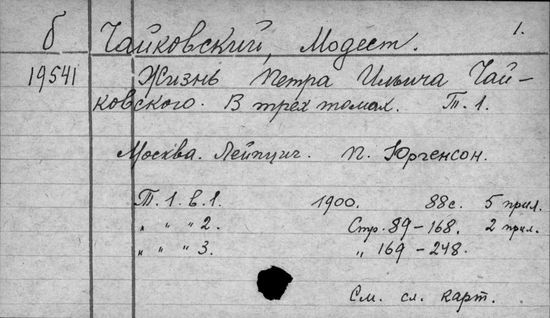 б Чайковский, Модест. 1.
19541 Жизнь Петра Ильича Чай-
ковского. В трех томах. Т. 1.
Москва. Лейпциг. П. Юргенсон.
Т. 1. в. 1. 1900. 88 с. 5 прил.
„ „ „ 2. Стр. 89-168. 2 прил.
„ „ „ 3. „ 169-248.
См. сл. карт.